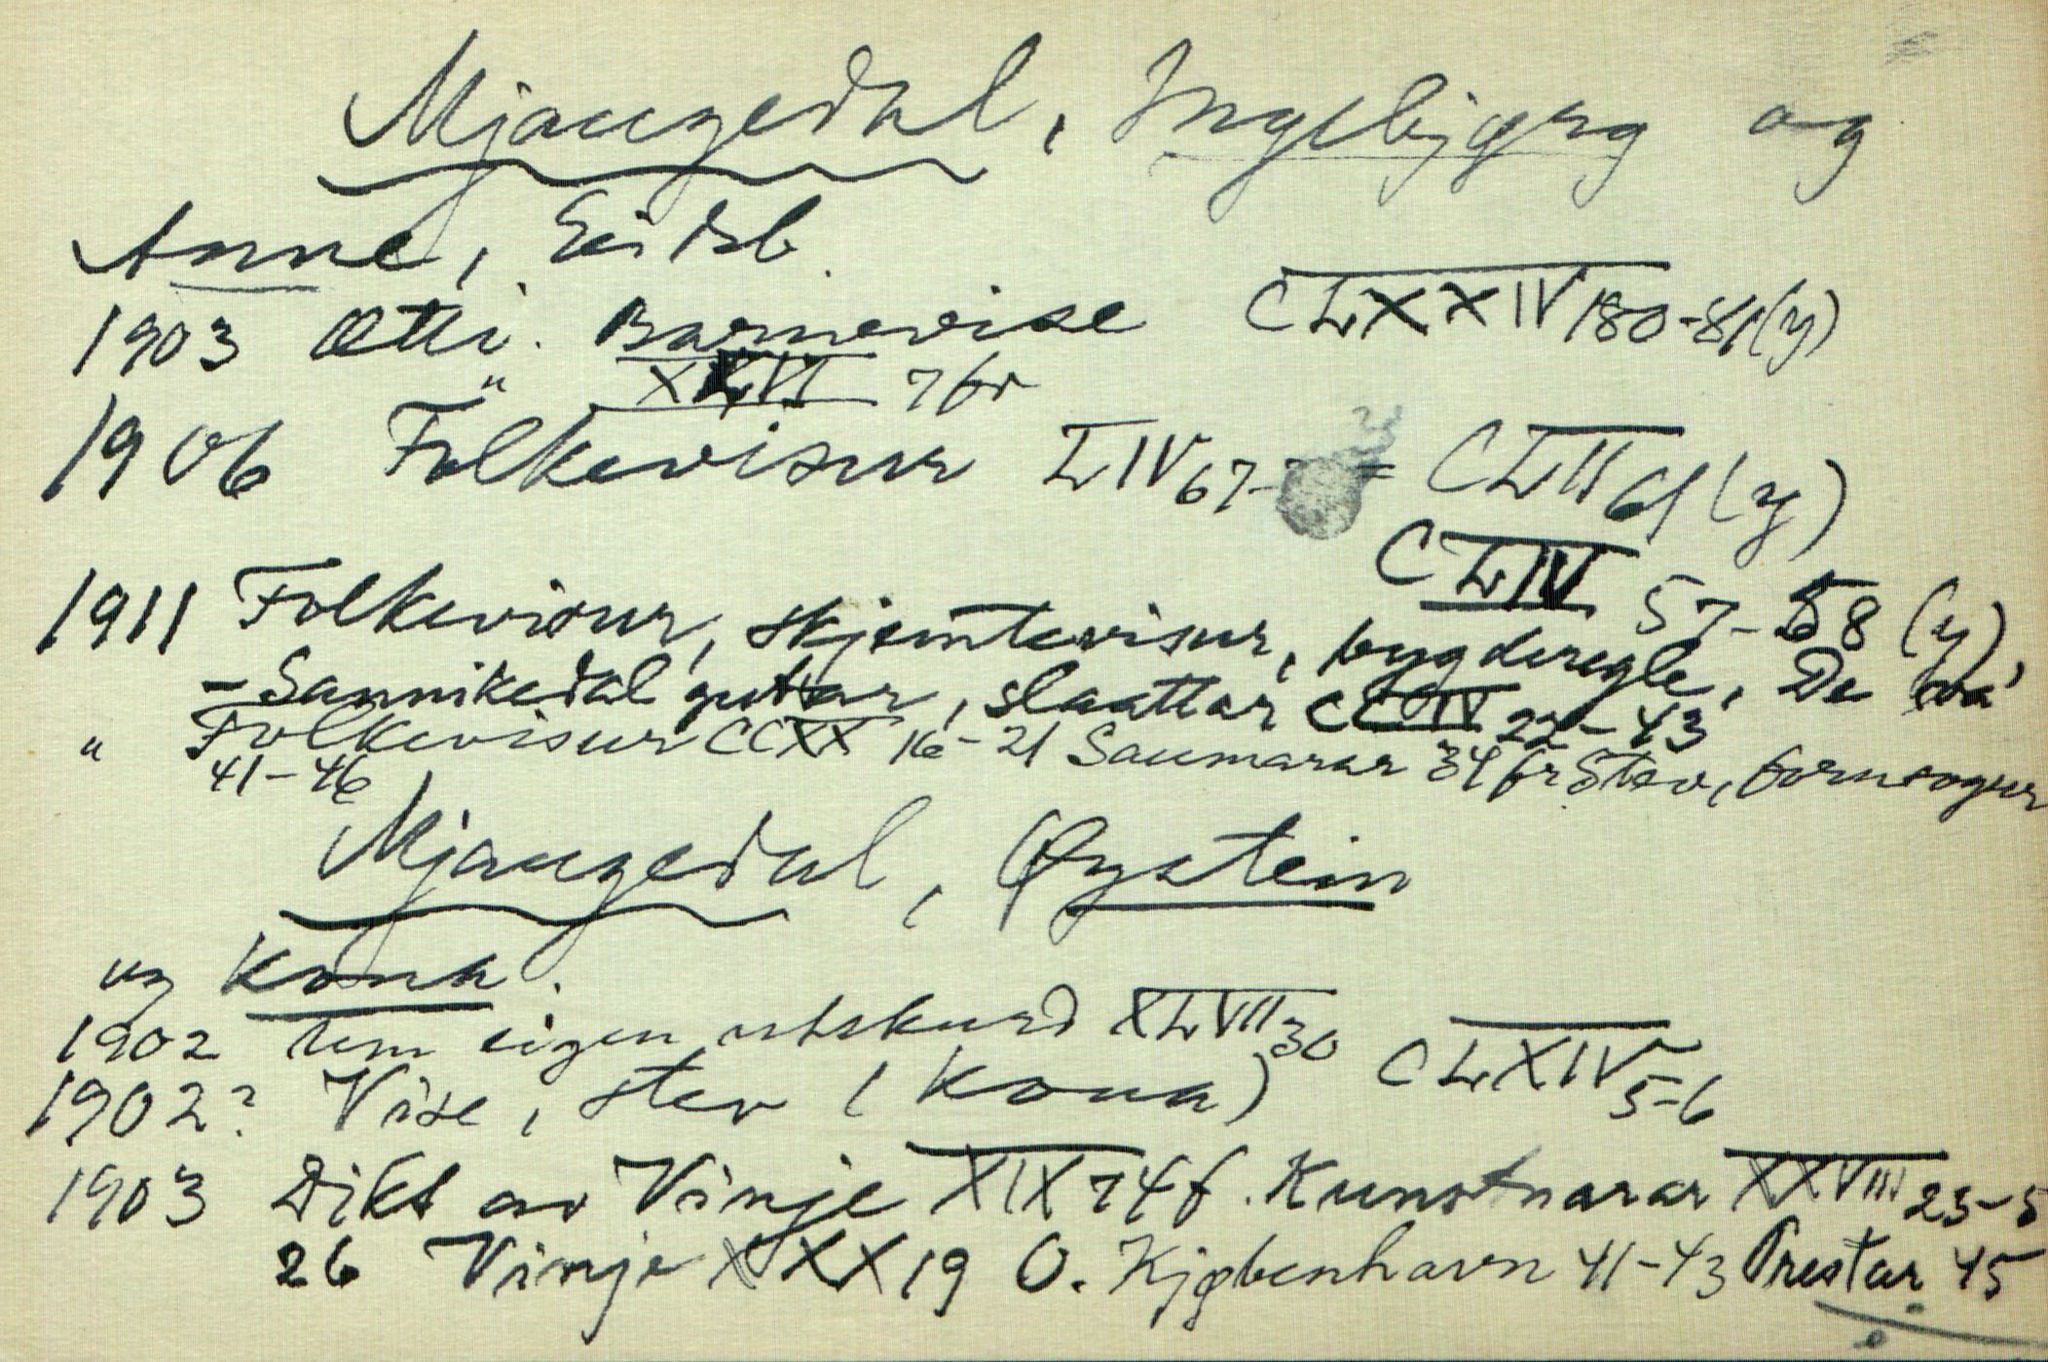 Mjaugedal, Ingebjørg og
Anne, Eidsb.
1903 Ætti. Barnevise CLXXIV 180-81(y)
" XLVI 7 fr
1906 Folkevisur LIV 67- = CLII 61 (y)
CLIV 57-58 (y),
1911 Folkevisur, skjemtevisur, bygderegle, De
- Sannikedal guttar, slaattar 22-43
" Folkevisur CCXX 16-21 Saumarar 34 fr Stev, fornsogur
41-46
Mjaugedal, Øystein
og Kona.
1902 um eigen utskurd XLVII 30
1902? Vise, stev (Kona) CLXIV 5-6
1903 Dikt av Vinje XIX 74 f. Kunstnarar XXVIII 23-5
26 Vinje XXX 19 O. Kjøbenhavn 41-43 Prestar 45